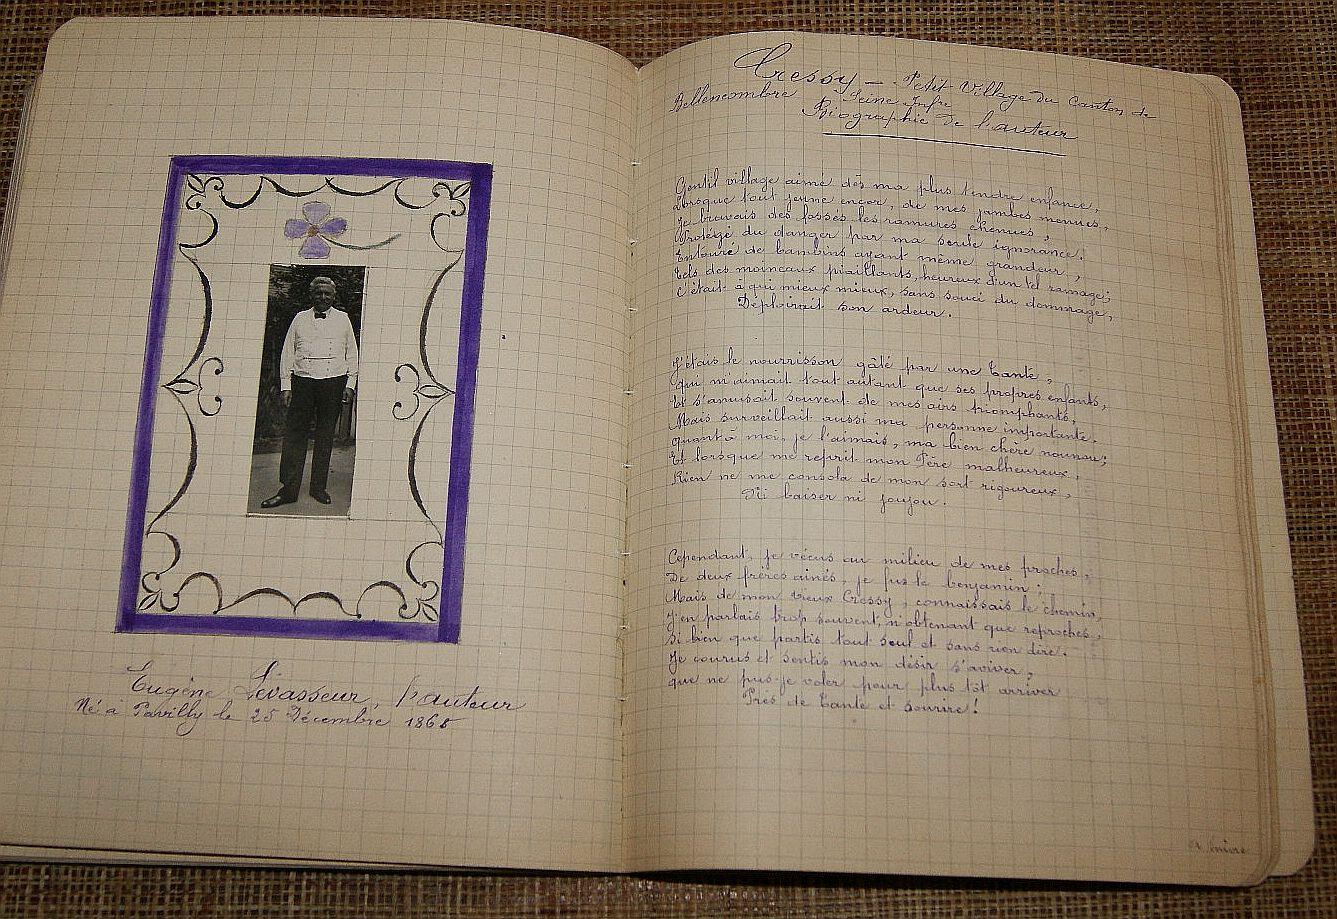 Eugène Levasseur, l'auteur
Né à Pavilly le 25 Décembre 1865
Cressy — Petit Village du Canton de
Bellencombre Seine Infre
Biographie de l'auteur
Gentil village aimé dès ma plus tendre enfance,
Lorsque tout jeune encor, de mes jambes menues,
Je bravais des fossés les ramures chenues,
Protégé du danger par ma seule ignorance.
Entouré de bambins ayant même grandeur,
Tels des moineaux piaillants, heureux d'un tel ramage;
C'était à qui mieux mieux, sans souci du dommage,
Déploirait son ardeur.
J'étais le nourrisson gâté par une Tante,
Qui m'aimait tout autant que ses propres enfants,
Et s'amusait souvent de mes airs triomphants,
Mais surveillait aussi ma personne importante.
Quant à moi, je l'aimais, ma bien chère nounou;
Et lorsque me reprit mon Père malheureux,
Rien ne me consola de mon sort rigoureux,
Ni baiser ni joujou.
Cependant, je vécus au milieu de mes proches,
De deux frères ainés, je fus le benjamin;
Mais de mon vieux Cressy, connaissais le chemin,
J'en parlais trop souvent, n'obtenant que reproches,
Si bien que partis tout seul et sans rien dire.
Je courus et sentis mon désir s'aviver,
Que ne pus-je voler pour plus tôt arriver
Près de Tante et sourire!